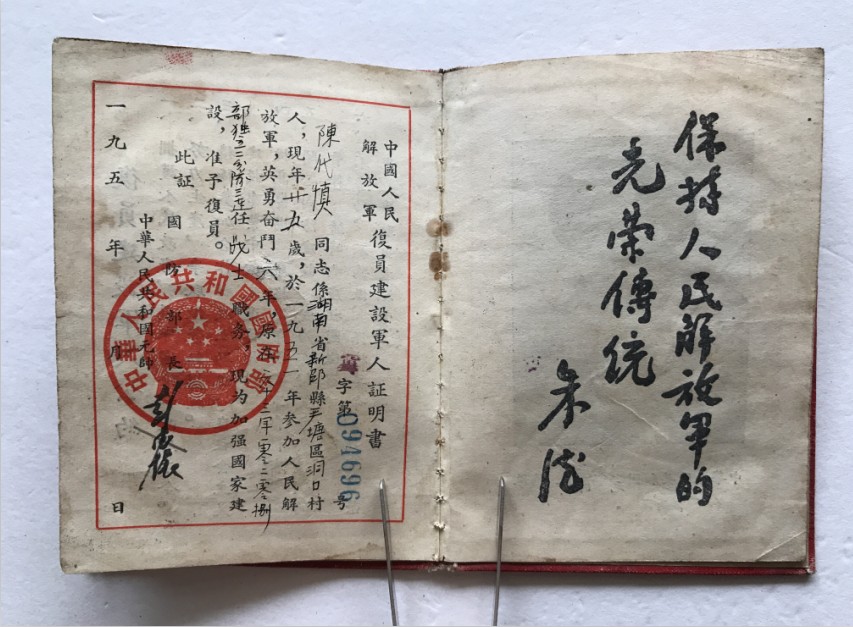 保持人民解放軍的
光榮傳統
朱德
中國人民
解放軍
復員建設軍人証明書
字第094696号
陳代慎同志係湖南省新邵縣塘區洞口村
人，現年廿五歲，於一九五一年參加人民解
放軍，英勇奮鬥六年，原在
部任战士職務。現为加强國家建
設，准予復員。
此証
國防部長
中華人民共和國元帥
彭德懷
一九五年月日
中華人民共和國國防部